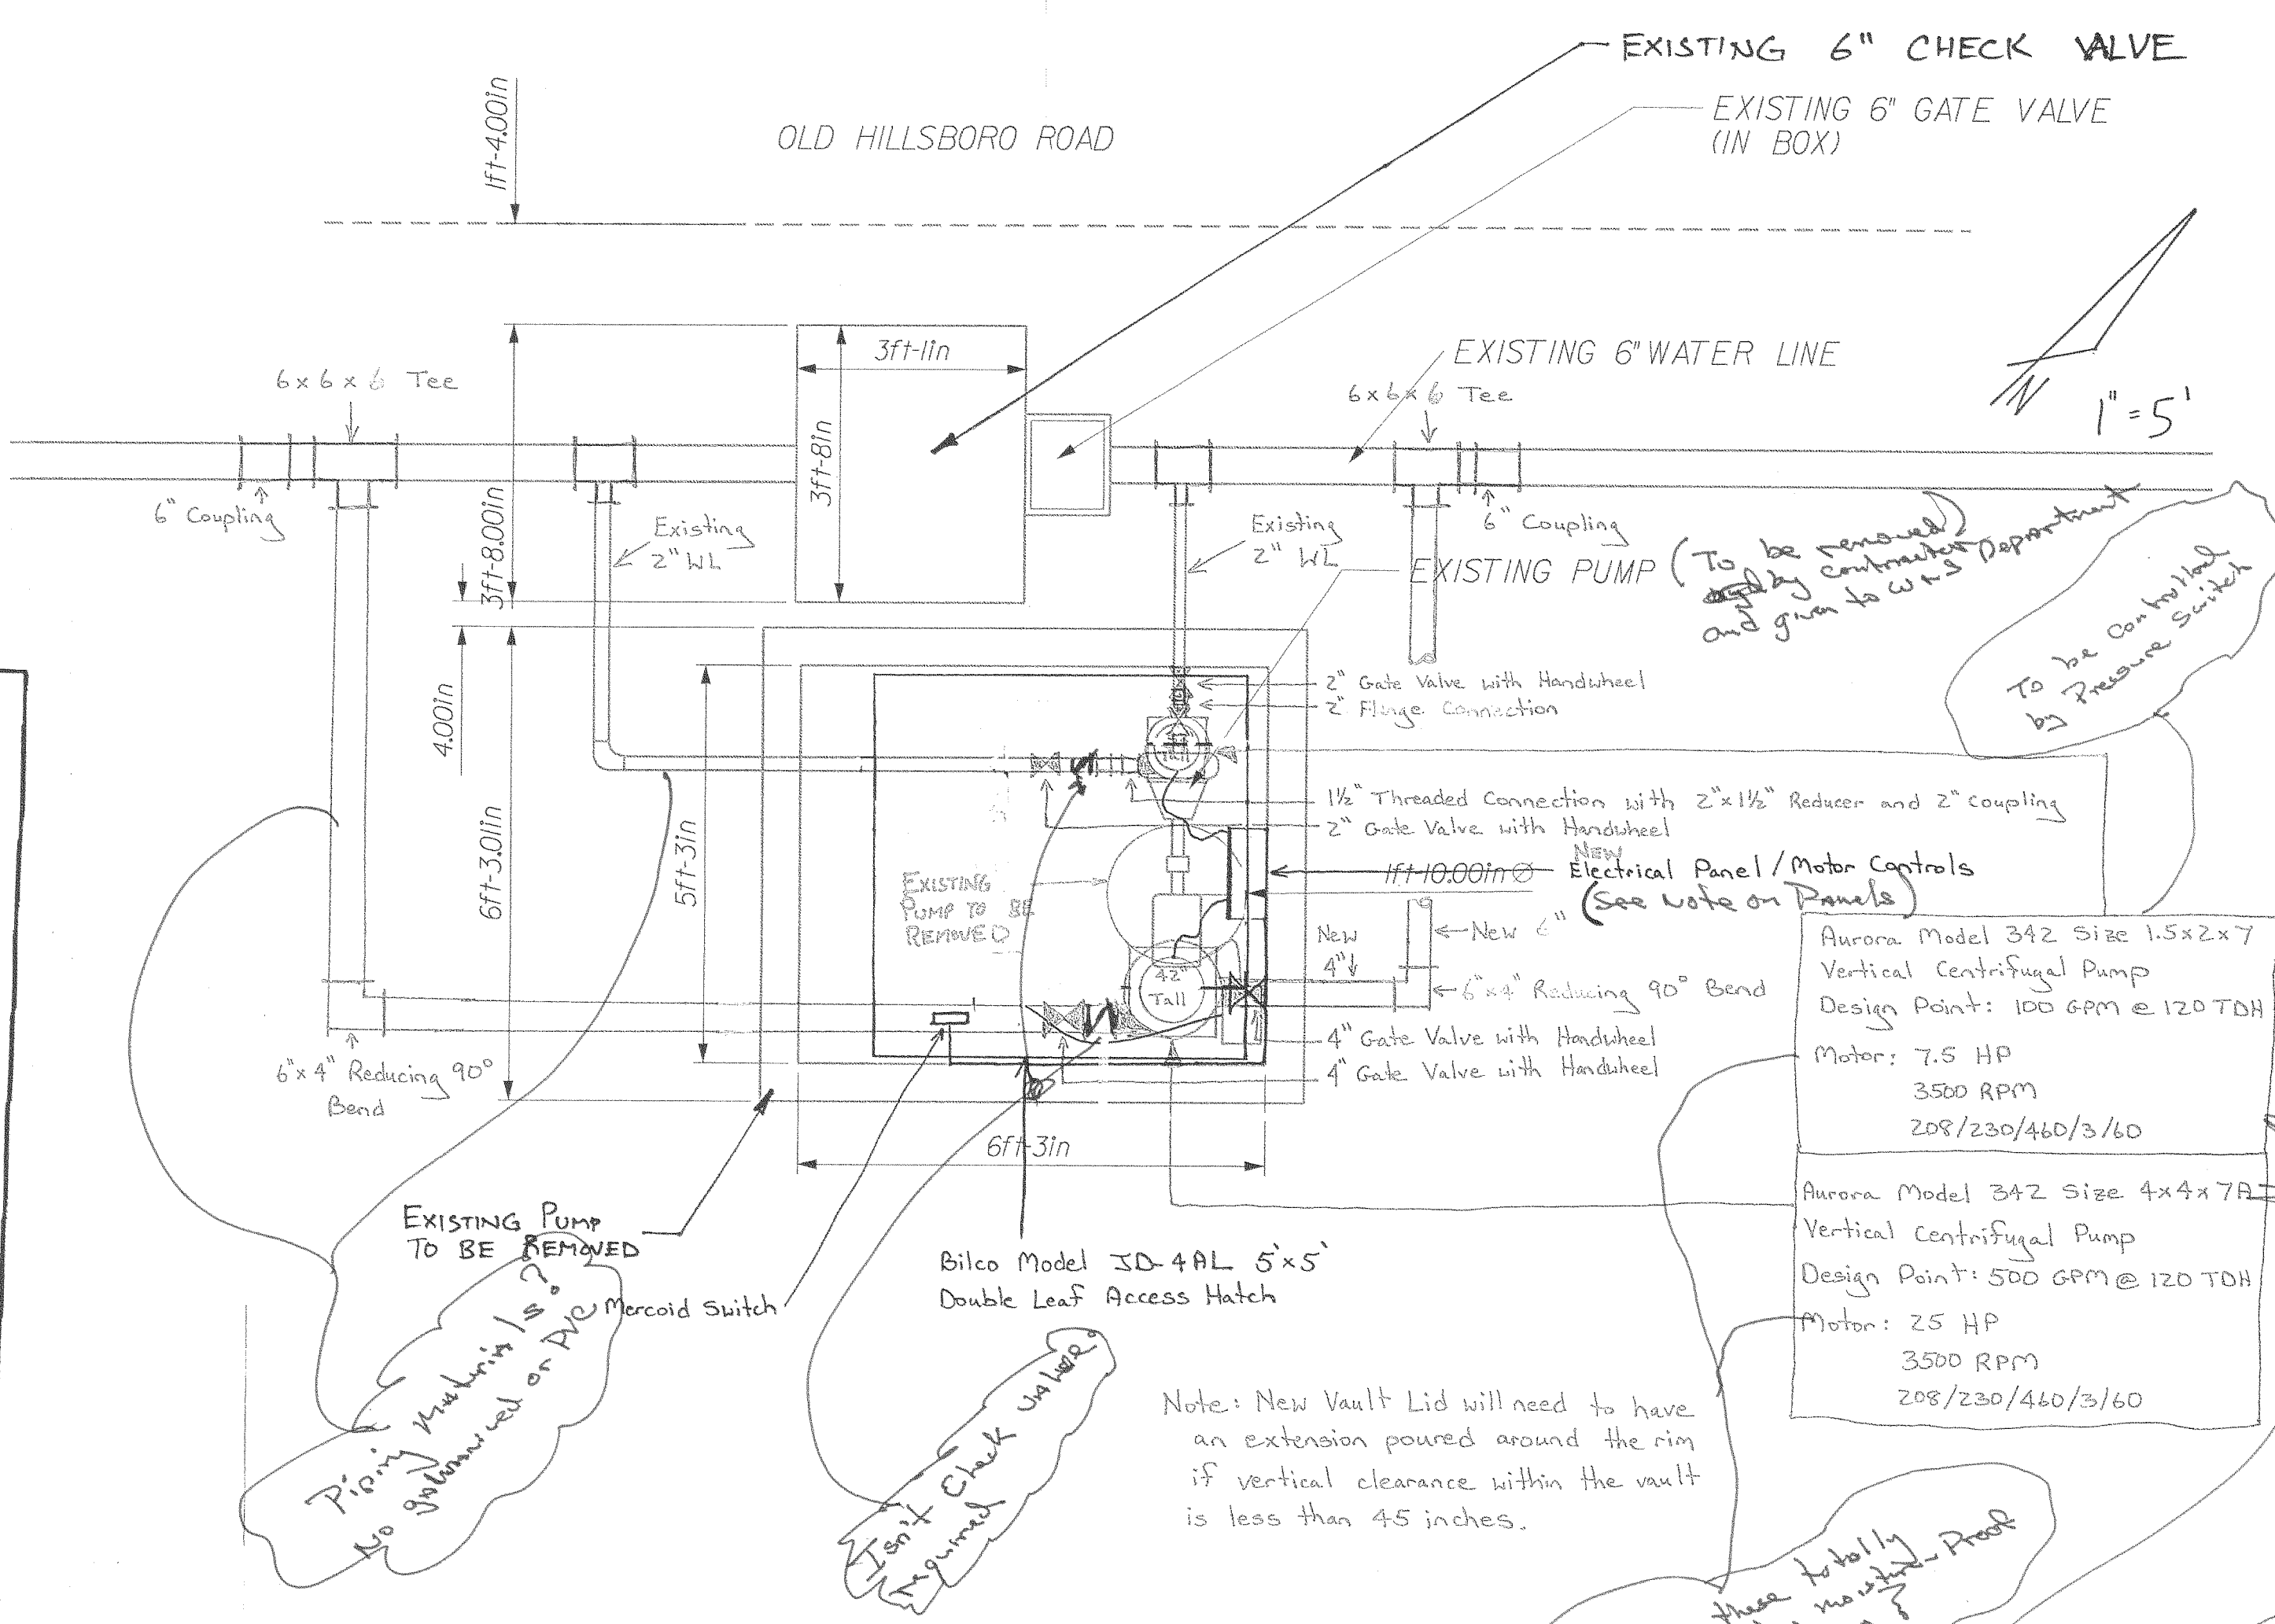 EXISTING 6" CHECK VALVE
EXISTING 6" GATE VALVE
(IN BOX)
OLD HILLSBORO ROAD
1ft-4.00in
3ft-1in
3ft-8in
3ft-8.00in
EXISTING 6" WATER LINE
6x6x6 Tee
6x6x6 Tee
N
1"=5'
6" Coupling
Existing
2" WL
Existing
2" WL
6" Coupling
EXISTING PUMP
(To be removed)
by contractor
and given to W&S Department
To be controlled
by Pressure Switch
4.00in
2" Gate Valve with Handwheel
2" Flange Connection
Tall
6ft-3.01in
5ft-3in
1½" Threaded Connection with 2"x1½" Reducer and 2" Coupling
2" Gate Valve with Handwheel
NEW
1ft-10.00in Ø
Electrical Panel / Motor Controls
(See Note on Panels)
EXISTING
PUMP TO BE
REMOVED
New
4"
New 6"
6"x4" Reducing 90° Bend
42"
Tall
4" Gate Valve with Handwheel
4" Gate Valve with Handwheel
6"x4" Reducing 90°
Bend
6ft-3in
Aurora Model 342 Size 1.5x2x7
Vertical Centrifugal Pump
Design Point: 100 GPM @ 120 TDH
Motor: 7.5 HP
3500 RPM
208/230/460/3/60
Aurora Model 342 Size 4x4x7A
Vertical Centrifugal Pump
Design Point: 500 GPM @ 120 TDH
Motor: 25 HP
3500 RPM
208/230/460/3/60
EXISTING PUMP
TO BE REMOVED
Mercoid Switch
Bilco Model JD-4AL 5'x5'
Double Leaf Access Hatch
Piping materials?
No galvanized or PVC
Isn't Check valve
required
Note: New Vault Lid will need to have
an extension poured around the rim
if vertical clearance within the vault
is less than 45 inches.
these totally
moisture-Proof